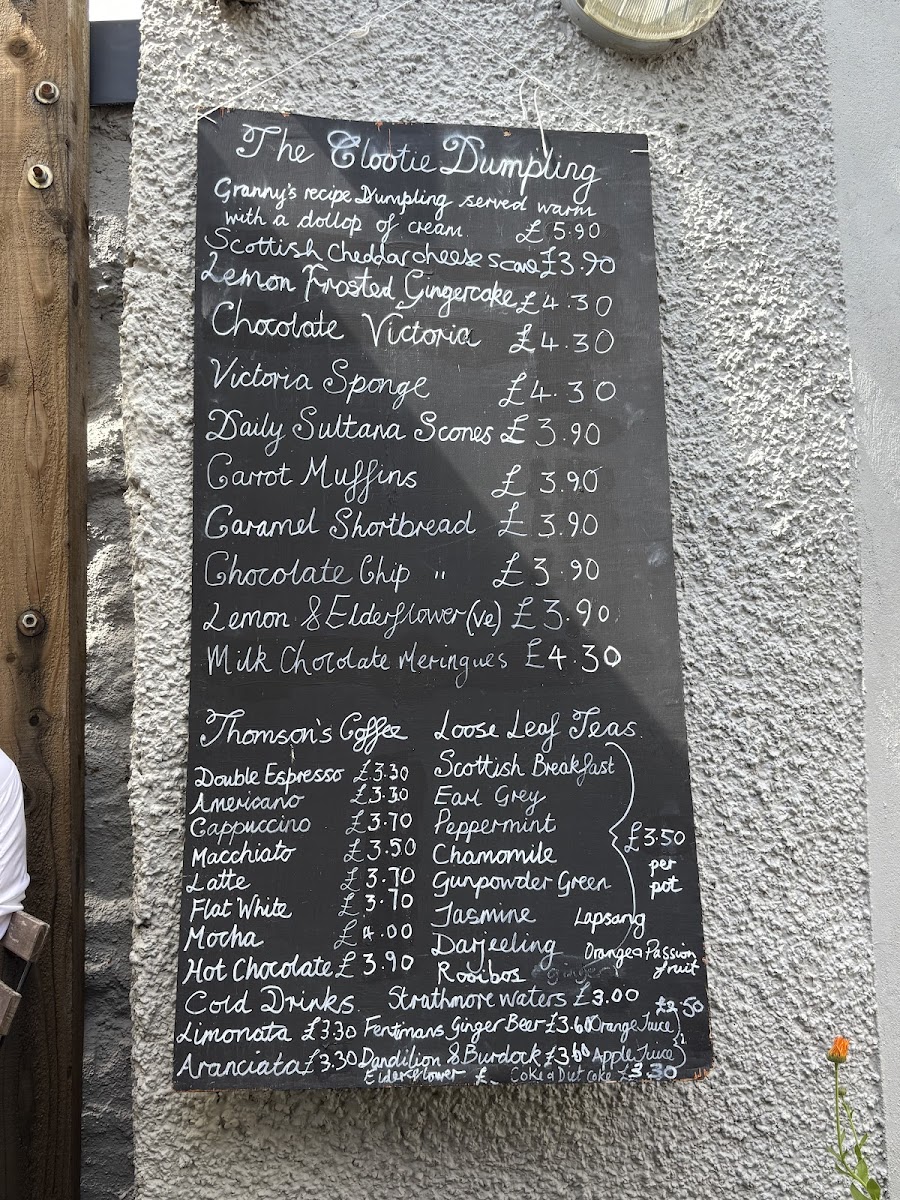 The Clootie Dumpling
Granny's recipe Dumpling served warm
with a dollop of cream. £5.90
Scottish Cheddar cheese scone £3.90
Lemon Frosted Gingercake £4.30
Chocolate Victoria £4.30
Victoria Sponge £4.30
Daily Sultana Scones £3.90
Carrot Muffins £3.90
Caramel Shortbread £3.90
Chocolate Chip " £3.90
Lemon & Elderflower (ve) £3.90
Milk Chocolate Meringues £4.30
Thomson's Coffee
Double Espresso £3.30
Americano £3.30
Cappuccino £3.70
Macchiato £3.50
Latte £3.70
Flat White £3.70
Mocha £4.00
Hot Chocolate £3.90
Loose Leaf Teas.
Scottish Breakfast
Earl Grey
Peppermint
Chamomile
Gunpowder Green
Jasmine Lapsang
Darjeeling Orange & Passion
fruit
Rooibos
£3.50
per
pot
Cold Drinks. Strathmore waters £3.00
Limonata £3.30 Fentimans Ginger Beer £3.60 Orange Juice
Aranciata £3.30 Dandilion & Burdock £3.60 Apple Juice
£2.50
Elderflower £ Coke & Diet coke £3.30